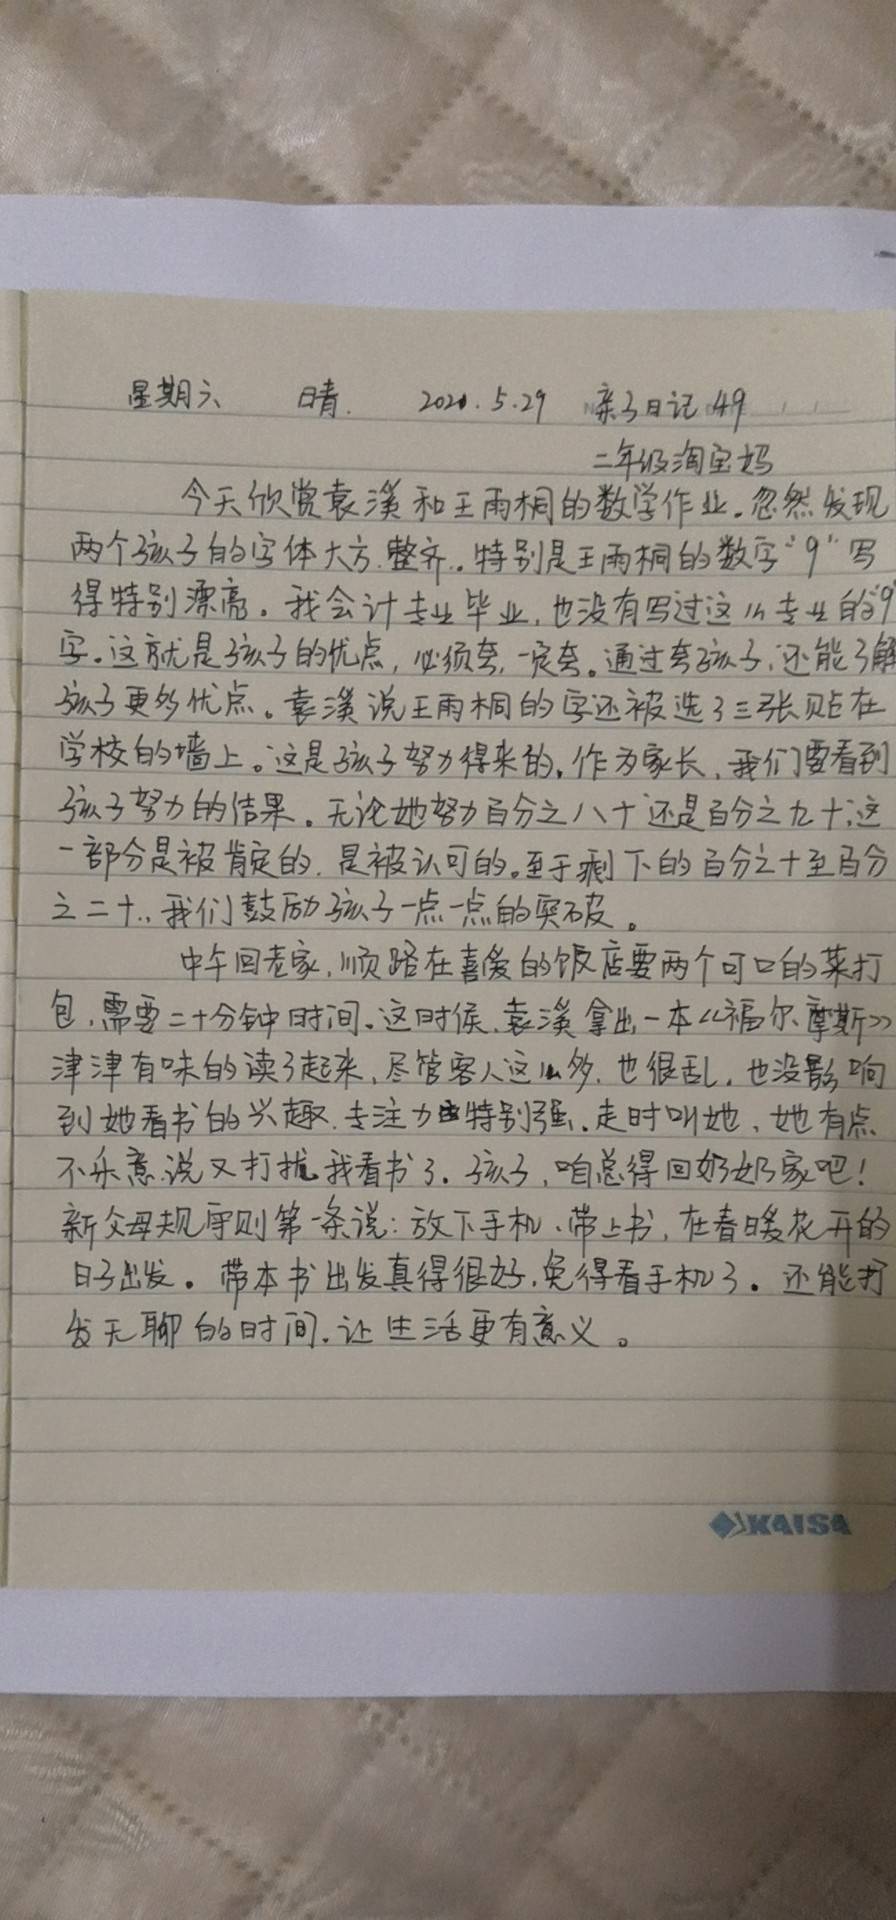 星期六 晴. 2020.5.29 亲子日记49
二年级淘宝妈
今天欣赏袁溪和王雨桐的数学作业。忽然发现
两个孩子的字体大方.整齐.特别是王雨桐的数字"9"写
得特别漂亮。我会计专业毕业,也没有写过这么专业的"9"
字。这就是孩子的优点,必须夸,一定夸。通过夸孩子,还能了解
孩子更多优点。袁溪说王雨桐的字还被选了三张贴在
学校的墙上。这是孩子努力得来的,作为家长,我们要看到
孩子努力的结果。无论她努力百分之八十还是百分之九十,这
一部分是被肯定的,是被认可的。至于剩下的百分之十至百分
之二十,我们鼓励孩子一点一点的突破。
中午回老家,顺路在喜爱的饭店要两个可口的菜打
包,需要二十分钟时间。这时候,袁溪拿出一本《福尔摩斯》
津津有味的读了起来,尽管客人这么多,也很乱,也没影响
到她看书的兴趣,专注力特别强。走时叫她,她有点
不乐意,说又打扰我看书了。孩子,咱总得回奶奶家吧!
新父母规守则第一条说:放下手机、带上书,在春暖花开的
日子出发。带本书出发真得很好,免得看手机了。还能打
发无聊的时间,让生活更有意义。
KAISA